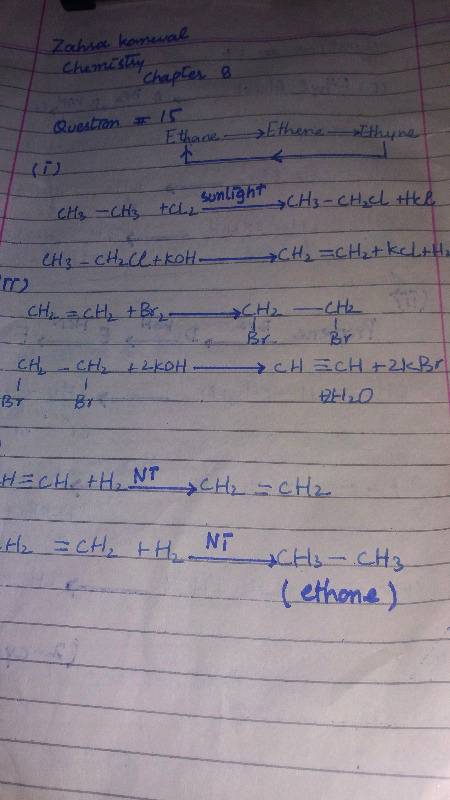 Zahra komewal
Chemistry
Chapter 8
Question # 15
Ethane → Ethene → Ethyne
(I)
CH3 – CH3 + Cl2 sunlight → CH3 – CH2Cl + HCl
CH3 – CH2Cl + KOH → CH2 = CH2 + KCl + H2
(II)
CH2 = CH2 + Br2 → CH2 – CH2
Br Br
CH2 – CH2 + 2KOH → CH ≡ CH + 2KBr
Br Br 2H2O
H ≡ CH + H2 NT → CH2 = CH2
H2 = CH2 + H2 NT → CH3 – CH3
(ethone)